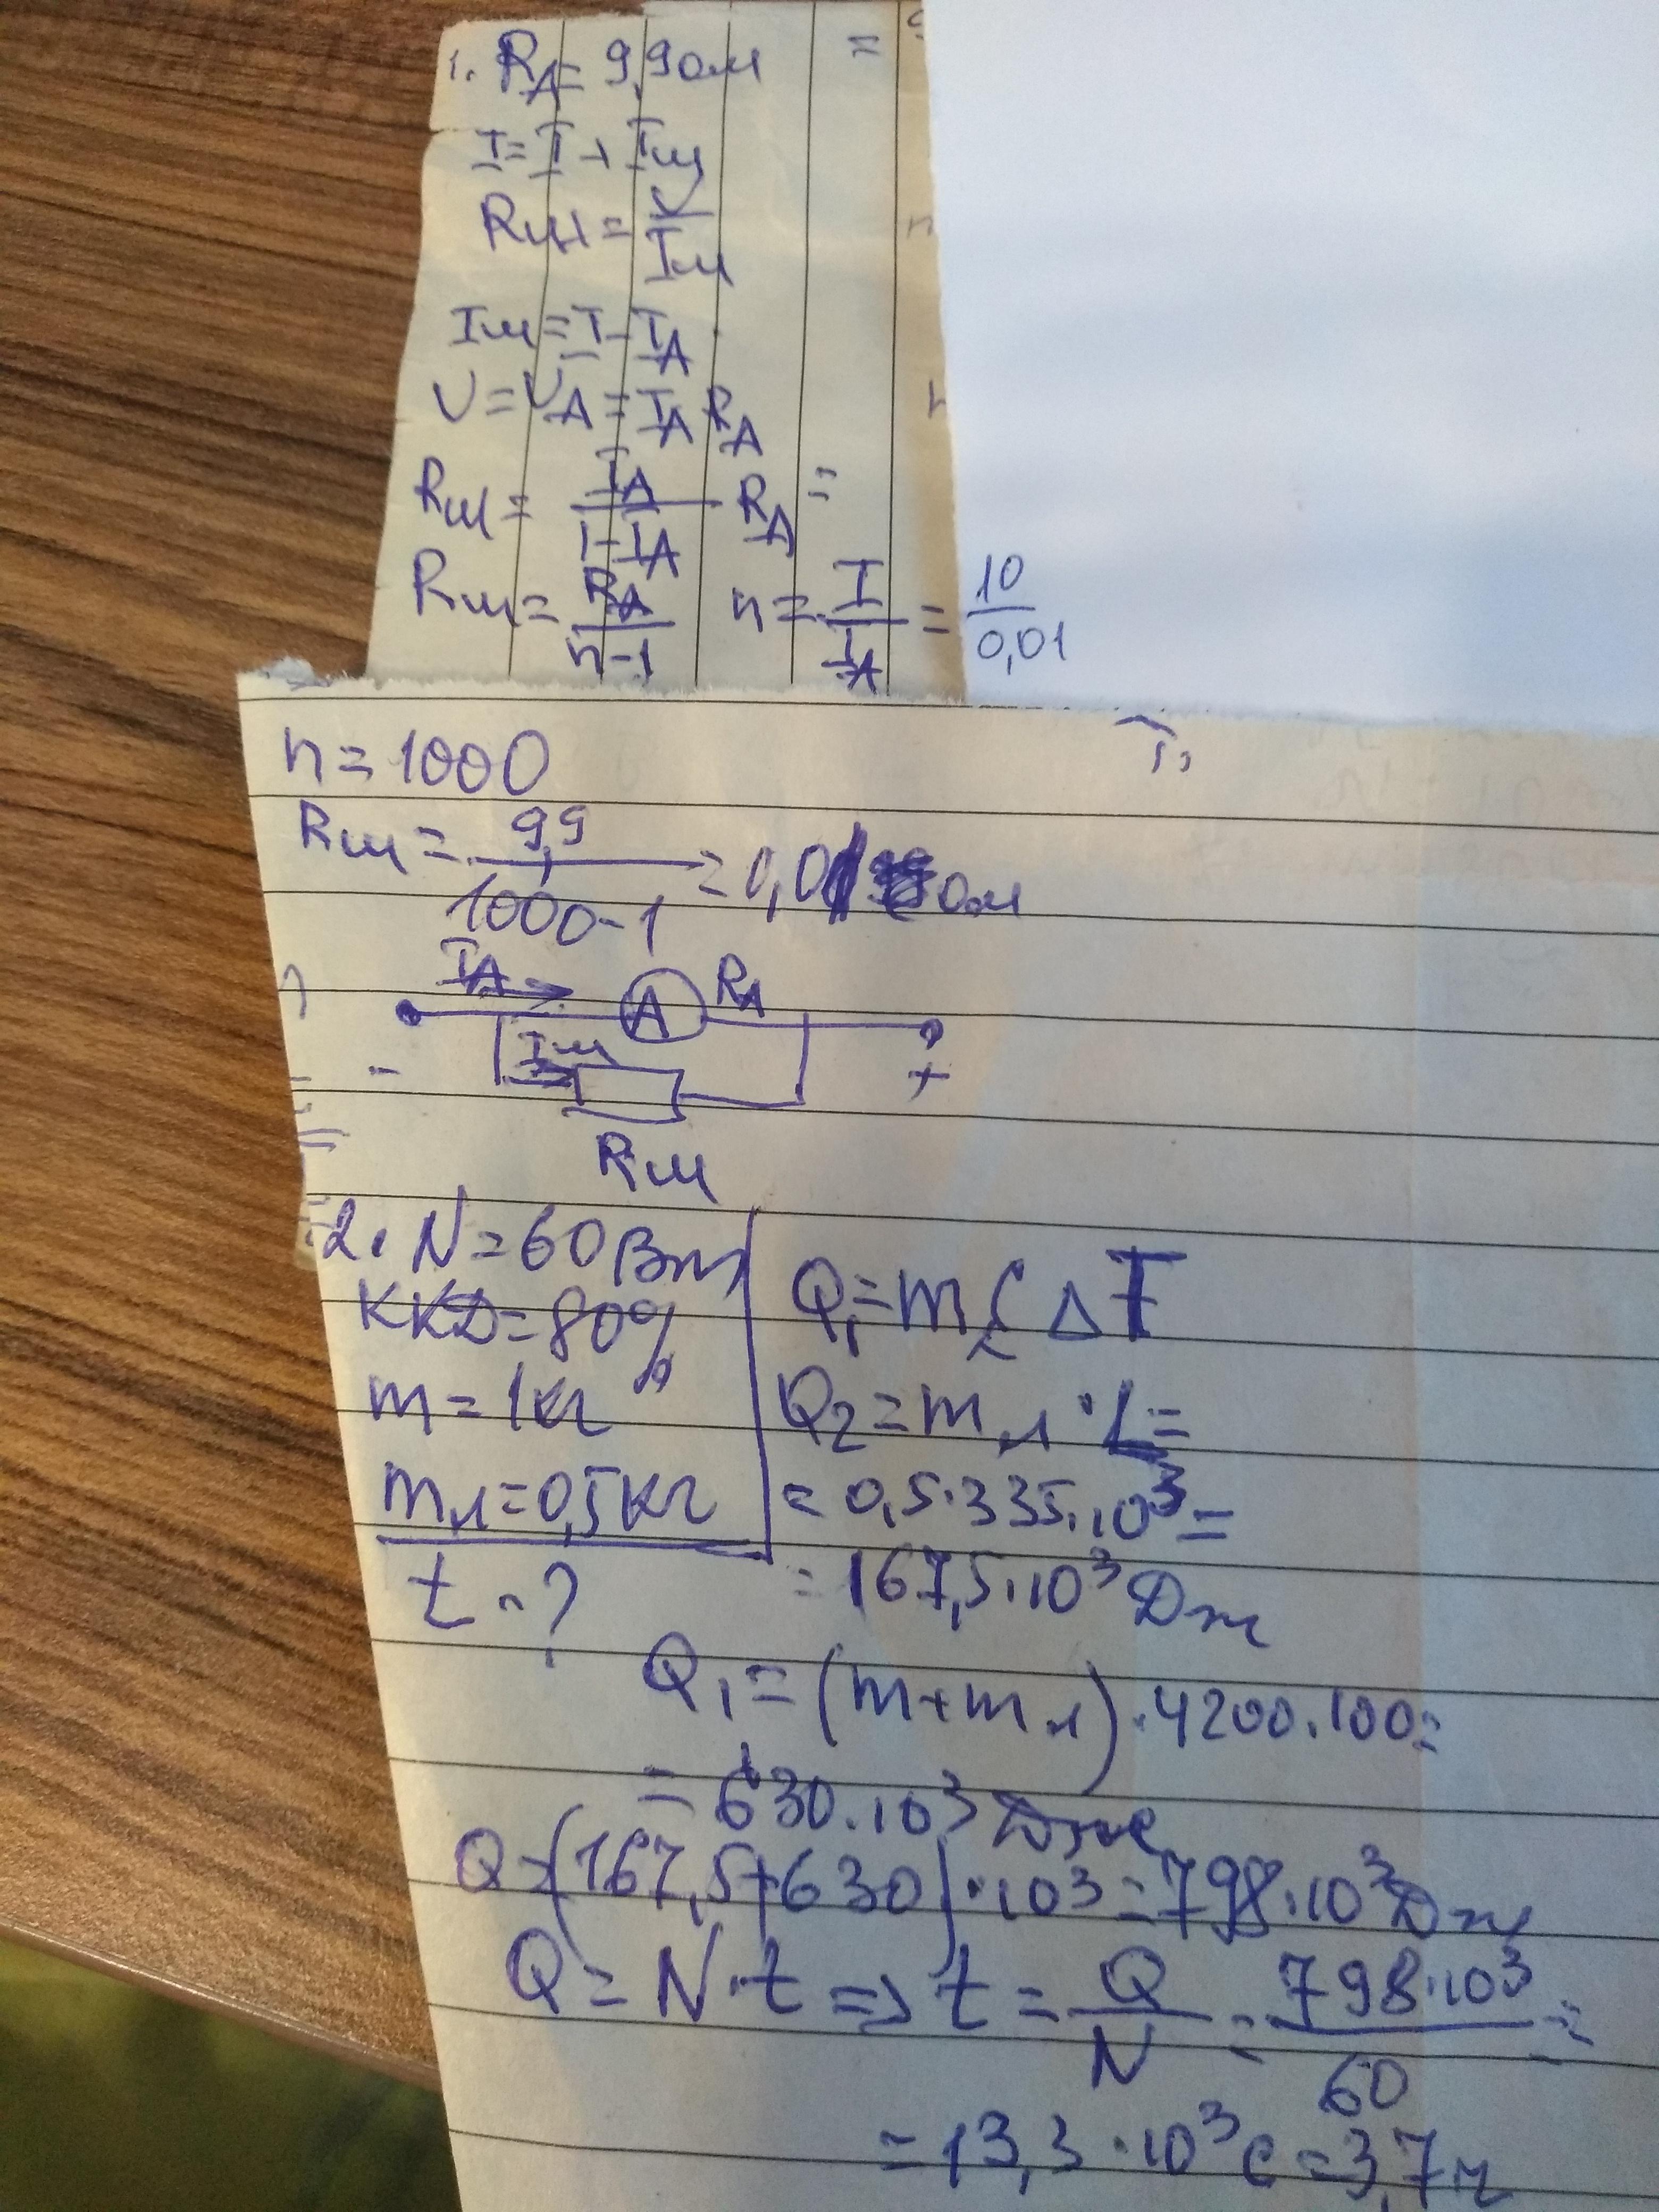 1. RA = 9,9 Ом
I = I + Iш
Rш = U/Iш
Iш = I - IA
U = UA = IA RA
Rш = IA/(I-IA) RA =
Rш = RA/(n-1) n = I/IA = 10/0,01
n = 1000
Rш = 9,9/(1000-1) = 0,01 Ом
IA A RA
Iш
- +
Rш
2. N = 60 Вт
ККД = 80%
m = 1кг
mл = 0,5кг
t - ?
Q1 = m c ΔT
Q2 = mл · L =
= 0,5 · 335 · 10³ =
= 167,5 · 10³ Дж
Q1 = (m + mл) · 4200 · 100 =
= 630 · 10³ Дж
Q = (167,5 + 630) · 10³ = 798 · 10³ Дж
Q = N · t => t = Q/N = 798 · 10³/60 =
= 13,3 · 10³ с = 3,7 ч